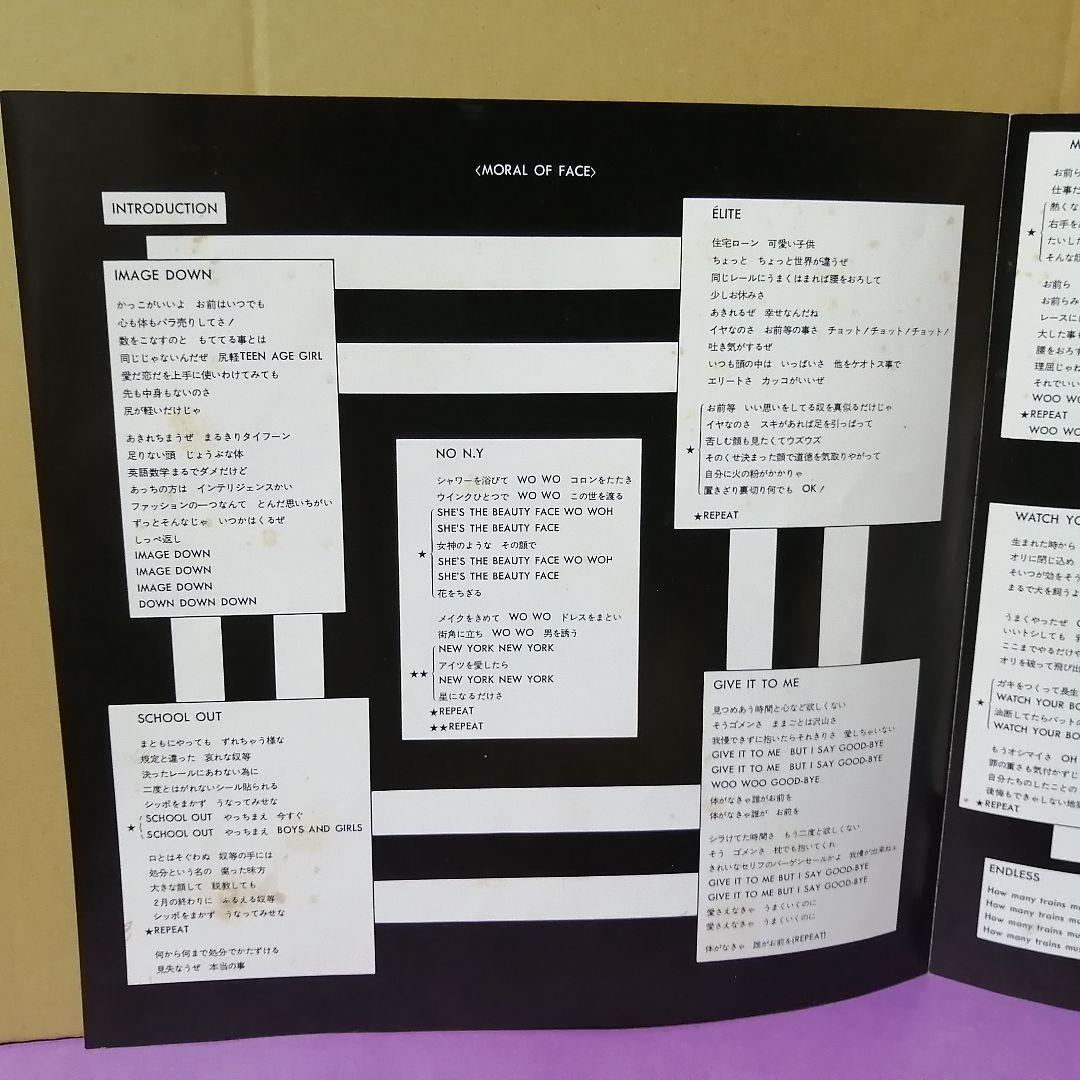 〈MORAL OF FACE〉
INTRODUCTION
IMAGE DOWN
かっこがいいよ　お前はいつでも
心も体もバラ売りしてさ！
数をこなすのと　もててる事とは
同じじゃないんだぜ　尻軽TEEN AGE GIRL
愛だ恋だを上手に使いわけてみても
先も中身もないのさ
尻が軽いだけじゃ
あきれちまうぜ　まるきりタイフーン
足りない頭　じょうぶな体
英語数学まるでダメだけど
あっちの方は　インテリジェンスかい
ファッションの一つなんて　とんだ思いちがい
ずっとそんなじゃ　いつかはくるぜ
しっぺ返し
IMAGE DOWN
IMAGE DOWN
IMAGE DOWN
DOWN DOWN DOWN
SCHOOL OUT
まともにやっても　ずれちゃう様な
規定と違った　哀れな奴等
決ったレールにあわない為に
二度とはがれないシール貼られる
シッポをまかず　うなってみせな
★SCHOOL OUT　やっちまえ　今すぐ
SCHOOL OUT　やっちまえ　BOYS AND GIRLS
口とはそぐわぬ　奴等の手には
処分という名の　腐った味方
大きな顔して　説教しても
2月の終わりに　ふるえる奴等
シッポをまかず　うなってみせな
★REPEAT
何から何まで処分でかたずける
見失なうぜ　本当の事
NO N.Y
シャワーを浴びて　WO WO　コロンをたたき
ウインクひとつで　WO WO　この世を渡る
SHE'S THE BEAUTY FACE WO WOH
SHE'S THE BEAUTY FACE
女神のような　その顔で
★SHE'S THE BEAUTY FACE WO WOH
SHE'S THE BEAUTY FACE
花をちぎる
メイクをきめて　WO WO　ドレスをまとい
街角に立ち　WO WO　男を誘う
NEW YORK NEW YORK
アイツを愛したら
★★NEW YORK NEW YORK
星になるだけさ
★REPEAT
★★REPEAT
ÉLITE
住宅ローン　可愛い子供
ちょっと　ちょっと世界が違うぜ
同じレールにうまくはまれば腰をおろして
少しお休みさ
あきれるぜ　幸せなんだね
イヤなのさ　お前等の事さ　チョット！チョット！チョット！
吐き気がするぜ
いつも頭の中は　いっぱいさ　他をケオトス事で
エリートさ　カッコがいいぜ
お前等　いい思いをしてる奴を真似るだけじゃ
イヤなのさ　スキがあれば足を引っぱって
★苦しむ顔も見たくてウズウズ
そのくせ決まった顔で道徳を気取りやがって
自分に火の粉がかかりゃ
置きざり裏切り何でも　OK！
★REPEAT
GIVE IT TO ME
見つめあう時間と心など欲しくない
そうゴメンさ　ままごとは沢山さ
我慢できずに抱いたらそれきりさ　愛しちゃいない
GIVE IT TO ME　BUT I SAY GOOD-BYE
GIVE IT TO ME　BUT I SAY GOOD-BYE
WOO WOO GOOD-BYE
体がなきゃ誰がお前を
体がなきゃ誰が　お前を
シラけてた時間さ　もう二度と欲しくない
そう　ゴメンさ　枕でも抱いてくれ
きれいなセリフのバーゲンセールかよ　我慢が出来ねェ
GIVE IT TO ME BUT I SAY GOOD-BYE
GIVE IT TO ME BUT I SAY GOOD-BYE
愛さえなきゃ　うまくいくのに
愛さえなきゃ　うまくいくのに
体がなきゃ　誰がお前を(REPEAT)
M
お前ら
仕事だ
熱くな
★右手を
たいした
そんな奴
お前ら
お前らみ
レースに
大した事も
腰をおろす
理屈じゃね
それでいい
WOO WO
★REPEAT
WOO WO
WATCH YO
生まれた時から
オリに閉じ込め
そいつが効をそう
まるで犬を飼うよ
うまくやったぜ
いいトシしても
ここまでやるだけや
オリを破って飛び出
ガキをつくって長生
★WATCH YOUR BO
油断してたらバットの
WATCH YOUR BO
もうオシマイさ　OH
罪の重さも気付かずに
自分たちのしたことの
後悔もできゃしない地獄
★REPEAT
ENDLESS
How many trains mu
How many trains mu
How many trains mu
How many trains mu